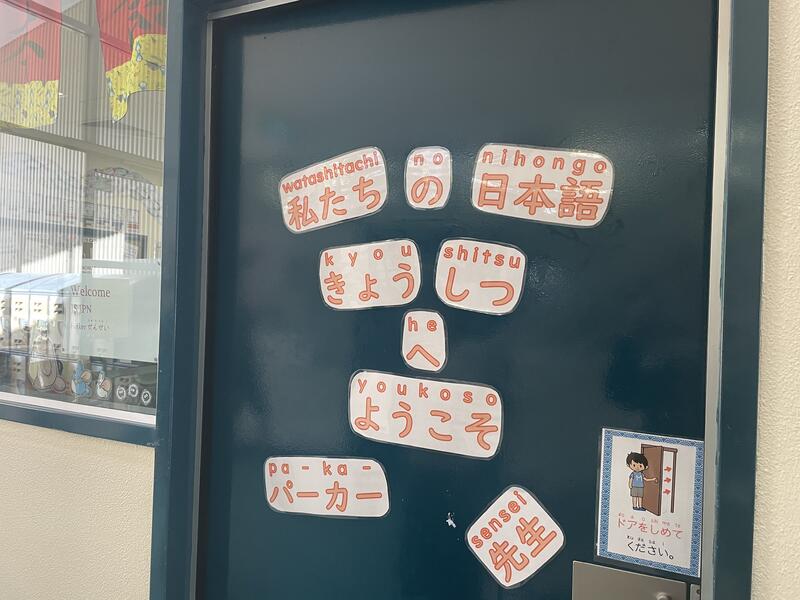 watashitachi no nihongo
私たち の 日本語
kyou shitsu
きょう しつ
he
へ
youkoso
ようこそ
pa-ka-
パーカー
sensei
先生
ドアをしめて
ください。
Welcome
せんせい